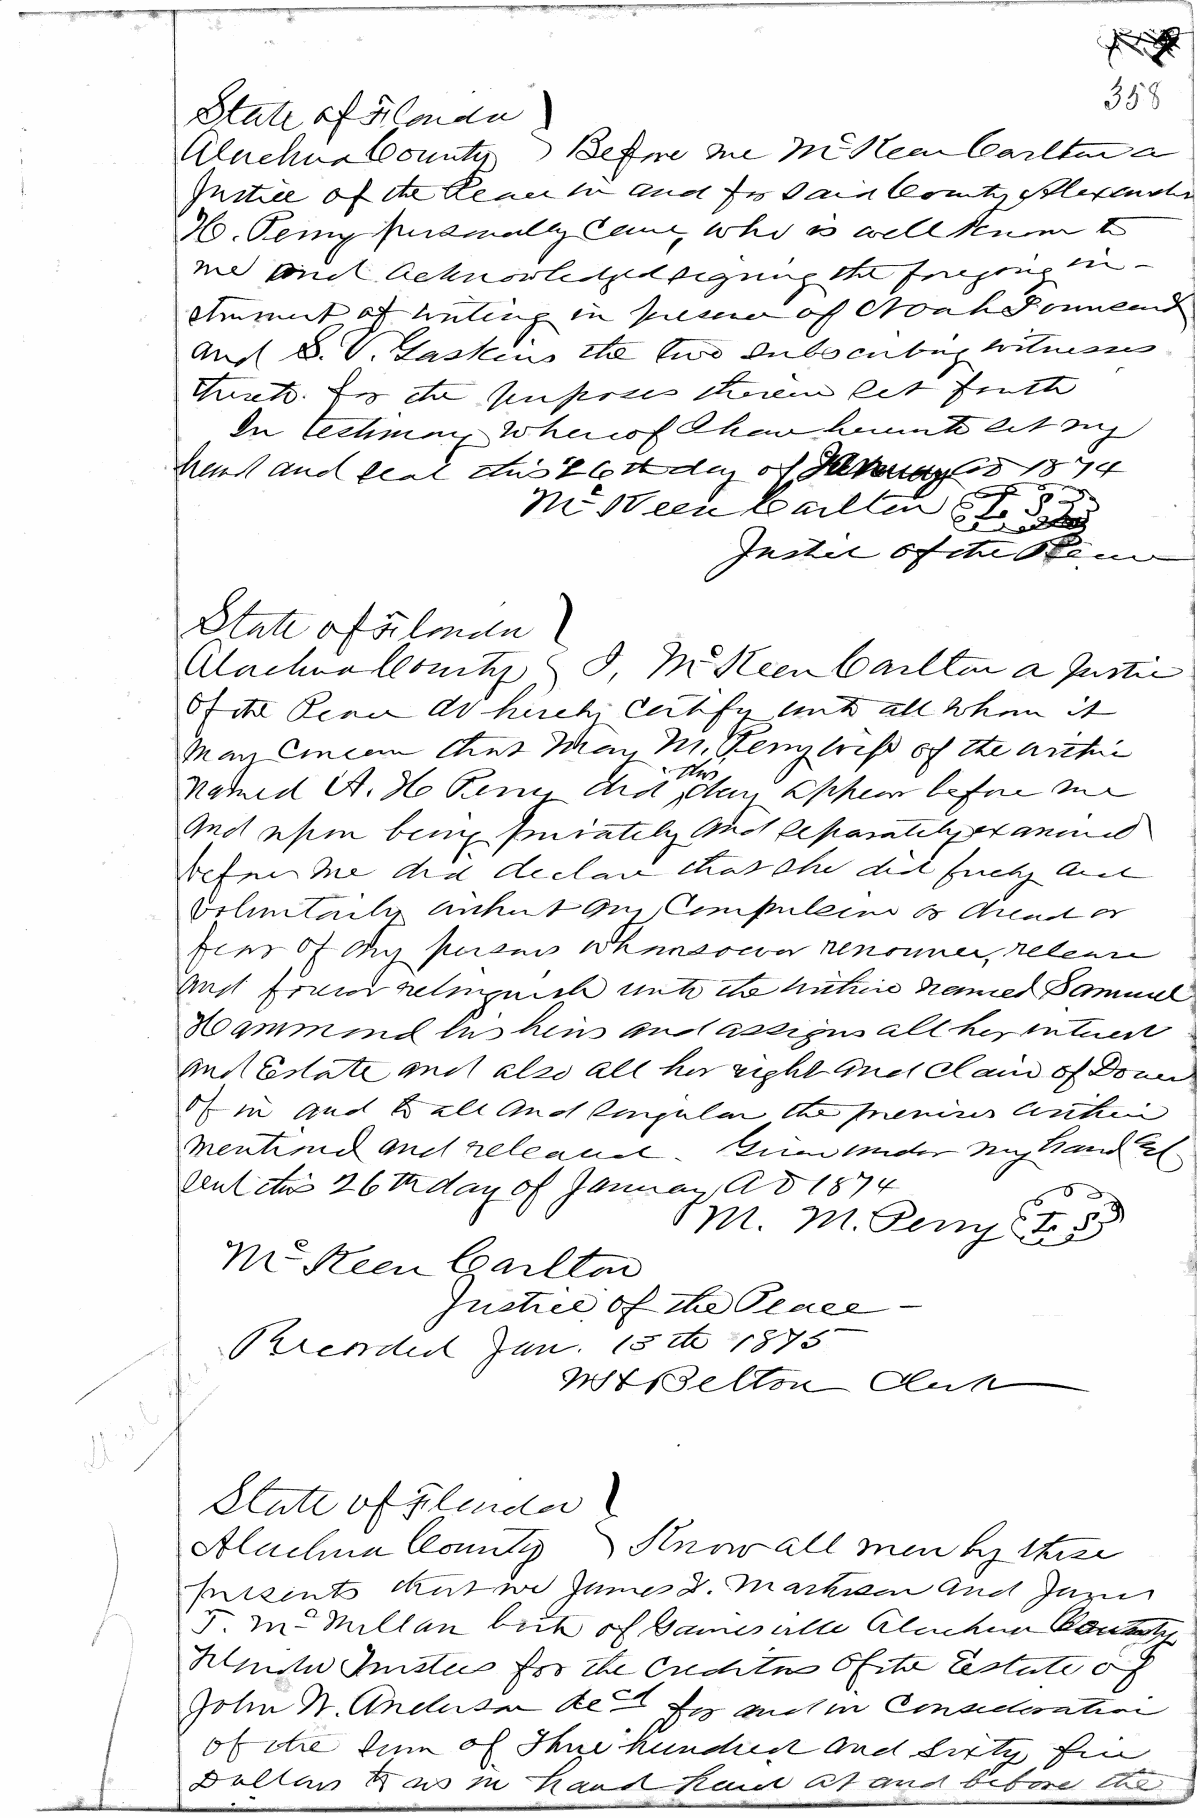 358
State of Florida
Alachua County } Before me McKeen Carlton a
Justice of the Peace in and for Said County Alexander
H. Perry personally Came, who is well Known to
me and acknowledged signing the foregoing in-
strument of writing in presence of Noah Townsend
and S. V. Gaskins the two subscribing witnesses
thereto. for the purposes therein set forth
In testimony whereof I have hereunto set my
hand and seal this 26th day of January AD 1874
McKeen Carlton L S
Justice of the Peace
State of Florida
Alachua County } I, McKeen Carlton a Justice
of the Peace do hereby certify unto all whom it
may Concern that Mary M. Perry wife of the within
named A. H Perry did this day appear before me
and upon being privately and separately examined
before me did declare that she did freely and
voluntarily without any Compulsion or dread or
fear of any persons whomsoever renounce, release
and forever relinquish unto the within named Samuel
Hammond his heirs and assigns all her interest
and Estate and also all her right and Claim of Dower
of in and to all and Singular the premises within
mentioned and released. Given under my hand and
seal this 26th day of January AD 1874
M. M. Perry L S
McKeen Carlton
Justice of the Peace -
Recorded Jan. 13th 1875
Belton Clerk
State of Florida
Alachua County } Know all men by these
presents that we James Matheson and James
T. McMillan both of Gainesville Alachua County
Florida Trustees for the Creditors of the Estate of
John W. Anderson decd for and in Consideration
of the Sum of Three hundred and Sixty five
Dollars to us in hand paid at and before the